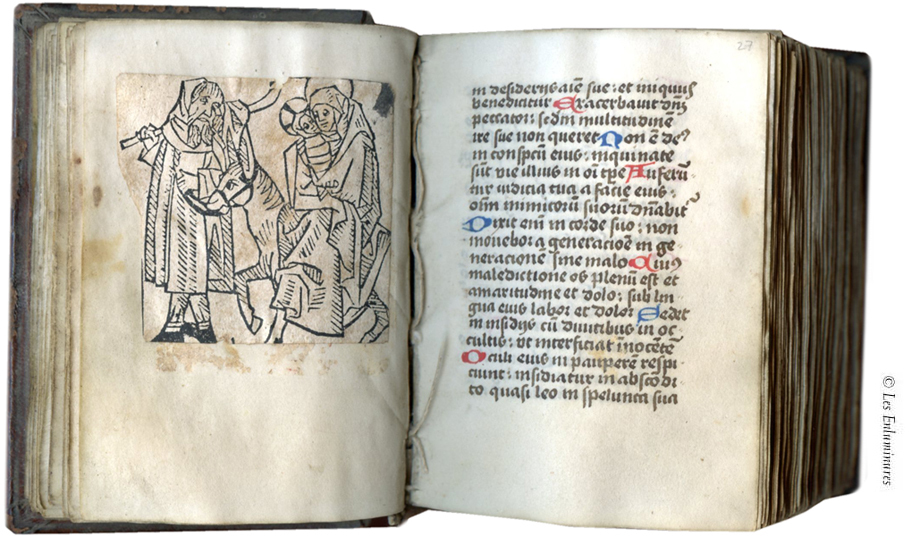 27
in desiderijs aīe sue: et iniquus
benedicitur Exacerbavit dnȝ
peccator: sedm multitudinē
ire sue non queret Non ē de⁹
in conspcū eius: inquinate
sūt vie illius in oī tpe Auferū
tur iudicia tua a facie eius:
oīm inimicorū suorū dn̄abit᷑
Dixit enī in corde suo: non
movebor a generacioē in ge
neracionē sine malo Cui⁹
maledictione os plenū est et
amaritudine et dolo: sub lin
gua eius labor et dolor Sedet
in insidijs cū divitibus in oc
cultis: ut interficiat īnocētē
Oculi eius in pauperē respi
ciunt: insidiatur in abscōdi
to quasi leo in spelunca sua
© Les Enluminures